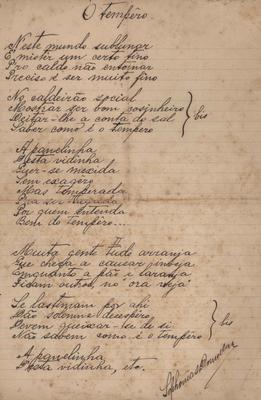 O tempero.
Neste mundo sublunar
É mister um certo tino
Pro caldo não entornar
Preciso é ser muito fino
No caldeirão social
Mostrar ser bom cosinheiro
Deitar-lhe a conta do sal
Saber como é o tempero
bis
A panelinha
Desta vidinha
Quer-se mexida
Sem exagero
Mas temperada
Pra ser tragada
Por quem entenda
Bem do tempero....
Muita gente tudo arranja
Que chega a causar inveja
Enquanto a pão e laranja
Ficam outros, no "ora veja"
Se lastimam por ahi
Dão solemne desespero
Devem queixar-se de si
Não sabem como é o tempero
bis
A panelinha
Desta vidinha, etc.